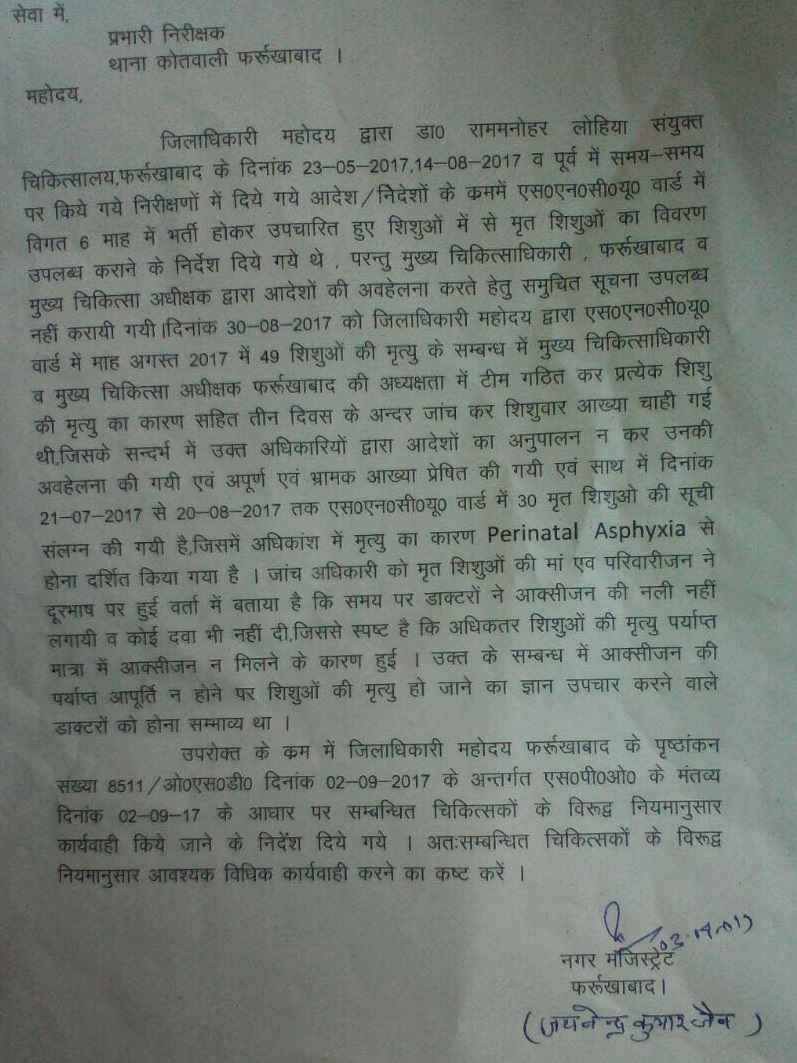 सेवा में,
प्रभारी निरीक्षक
थाना कोतवाली फर्रूखाबाद ।
महोदय,
जिलाधिकारी महोदय द्वारा डा० राममनोहर लोहिया संयुक्त
चिकित्सालय,फर्रूखाबाद के दिनांक 23–05–2017,14–08–2017 व पूर्व में समय–समय
पर किये गये निरीक्षणों में दिये गये आदेश/निदेशों के कममें एस०एन०सी०यू० वार्ड में
विगत 6 माह में भर्ती होकर उपचारित हुए शिशुओं में से मृत शिशुओं का विवरण
उपलब्ध कराने के निर्देश दिये गये थे , परन्तु मुख्य चिकित्साधिकारी , फर्रूखाबाद व
मुख्य चिकित्सा अधीक्षक द्वारा आदेशों की अवहेलना करते हेतु समुचित सूचना उपलब्ध
नहीं करायी गयी।दिनांक 30–08–2017 को जिलाधिकारी महोदय द्वारा एस०एन०सी०यू०
वार्ड में माह अगस्त 2017 में 49 शिशुओं की मृत्यु के सम्बन्ध में मुख्य चिकित्साधिकारी
व मुख्य चिकित्सा अधीक्षक फर्रूखाबाद की अध्यक्षता में टीम गठित कर प्रत्येक शिशु
की मृत्यु का कारण सहित तीन दिवस के अन्दर जांच कर शिशुवार आख्या चाही गई
थी,जिसके सन्दर्भ में उक्त अधिकारियों द्वारा आदेशों का अनुपालन न कर उनकी
अवहेलना की गयी एवं अपूर्ण एवं भ्रामक आख्या प्रेषित की गयी एवं साथ में दिनांक
21–07–2017 से 20–08–2017 तक एस०एन०सी०यू० वार्ड में 30 मृत शिशुओ की सूची
संलग्न की गयी है,जिसमें अधिकांश में मृत्यु का कारण Perinatal Asphyxia से
होना दर्शित किया गया है । जांच अधिकारी को मृत शिशुओं की मां एव परिवारीजन ने
दूरभाष पर हुई वर्ता में बताया है कि समय पर डाक्टरों ने आक्सीजन की नली नहीं
लगायी व कोई दवा भी नहीं दी,जिससे स्पष्ट है कि अधिकतर शिशुओं की मृत्यु पर्याप्त
मात्रा में आक्सीजन न मिलने के कारण हुई । उक्त के सम्बन्ध में आक्सीजन की
पर्याप्त आपूर्ति न होने पर शिशुओं की मृत्यु हो जाने का ज्ञान उपचार करने वाले
डाक्टरों को होना सम्भाव्य था ।
उपरोक्त के कम में जिलाधिकारी महोदय फर्रूखाबाद के पृष्ठांकन
संख्या 8511/ओ०एस०डी० दिनांक 02–09–2017 के अन्तर्गत एस०पी०ओ० के मंतव्य
दिनांक 02–09–17 के आधार पर सम्बन्धित चिकित्सकों के विरूद्व नियमानुसार
कार्यवाही किये जाने के निर्देश दिये गये । अतःसम्बन्धित चिकित्सकों के विरूद्व
नियमानुसार आवश्यक विधिक कार्यवाही करने का कष्ट करें ।
नगर मजिस्ट्रेट
फर्रूखाबाद।
(जयनेन्द्र कुमार जैन)